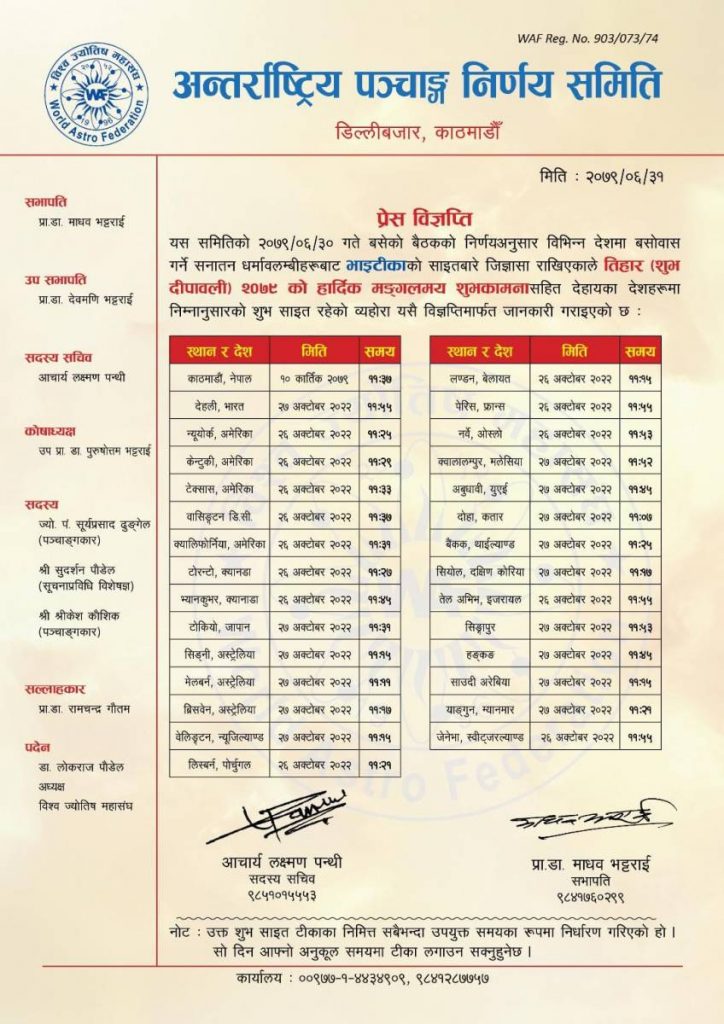 WAF Reg. No. 903/073/74
विश्व ज्योतिष महासंघ
WAF
World Astro Federation
अन्तर्राष्ट्रिय पञ्चाङ्ग निर्णय समिति
डिल्लीबजार, काठमाडौँ
मिति : २०७९/०६/३१
सभापति
प्रा.डा. माधव भट्टराई
उप सभापति
प्रा.डा. देवमणि भट्टराई
सदस्य सचिव
आचार्य लक्ष्मण पन्थी
कोषाध्यक्ष
उप प्रा. डा. पुरुषोत्तम भट्टराई
सदस्य
ज्यो. पं. सूर्यप्रसाद ढुङ्गेल
(पञ्चाङ्गकार)
श्री सुदर्शन पौडेल
(सूचनाप्रविधि विशेषज्ञ)
श्री श्रीकेश कौशिक
(पञ्चाङ्गकार)
सल्लाहकार
प्रा.डा. रामचन्द्र गौतम
पदेन
डा. लोकराज पौडेल
अध्यक्ष
विश्व ज्योतिष महासंघ
प्रेस विज्ञप्ति
यस समितिको २०७९/०६/३० गते बसेको बैठकको निर्णयअनुसार विभिन्न देशमा बसोवास
गर्ने सनातन धर्मावलम्बीहरूबाट भाइटीकाको साइतबारे जिज्ञासा राखिएकाले तिहार (शुभ
दीपावली) २०७९ को हार्दिक मङ्गलमय शुभकामनासहित देहायका देशहरूमा
निम्नानुसारको शुभ साइत रहेको व्यहोरा यसै विज्ञप्तिमार्फत जानकारी गराइएको छ :
स्थान र देश मिति समय
काठमाडौं, नेपाल १० कार्तिक २०७९ ११:३७
देहली, भारत २७ अक्टोबर २०२२ ११:५५
न्यूयोर्क, अमेरिका २६ अक्टोबर २०२२ ११:२५
केन्टुकी, अमेरिका २६ अक्टोबर २०२२ ११:२९
टेक्सास, अमेरिका २६ अक्टोबर २०२२ ११:३३
वासिङ्टन डि.सी. २६ अक्टोबर २०२२ ११:३७
क्यालिफोर्निया, अमेरिका २६ अक्टोबर २०२२ ११:३१
टोरन्टो, क्यानडा २६ अक्टोबर २०२२ ११:२७
भ्यानकुभर, क्यानाडा २६ अक्टोबर २०२२ ११:४५
टोकियो, जापान २७ अक्टोबर २०२२ ११:३१
सिड्नी, अस्ट्रेलिया २७ अक्टोबर २०२२ ११:१५
मेलबर्न, अस्ट्रेलिया २७ अक्टोबर २०२२ ११:११
ब्रिसवेन, अस्ट्रेलिया २७ अक्टोबर २०२२ ११:१७
वेलिङ्टन, न्यूजिल्याण्ड २७ अक्टोबर २०२२ ११:१५
लिस्बर्न, पोर्चुगल २६ अक्टोबर २०२२ ११:२१
स्थान र देश मिति समय
लण्डन, बेलायत २६ अक्टोबर २०२२ ११:१५
पेरिस, फ्रान्स २६ अक्टोबर २०२२ ११:५५
नर्वे, ओस्लो २६ अक्टोबर २०२२ ११:५३
क्वालालम्पुर, मलेसिया २७ अक्टोबर २०२२ ११:५२
अबुधावी, युएई २७ अक्टोबर २०२२ ११:४५
दोहा, कतार २७ अक्टोबर २०२२ ११:०७
बैंकक, थाईल्याण्ड २७ अक्टोबर २०२२ ११:२५
सियोल, दक्षिण कोरिया २७ अक्टोबर २०२२ ११:१७
तेल अभिम, इजरायल २६ अक्टोबर २०२२ ११:५५
सिङ्गापुर २७ अक्टोबर २०२२ ११:५३
हङ्कङ २७ अक्टोबर २०२२ ११:४५
साउदी अरेबिया २७ अक्टोबर २०२२ ११:१५
याङ्गुन, म्यानमार २७ अक्टोबर २०२२ ११:२१
जेनेभा, स्वीट्जरल्याण्ड २६ अक्टोबर २०२२ ११:५५
आचार्य लक्ष्मण पन्थी
सदस्य सचिव
९८५१०१५५५३
प्रा.डा. माधव भट्टराई
सभापति
९८४१७६०२९९
नोट : उक्त शुभ साइत टीकाका निमित्त सबैभन्दा उपयुक्त समयका रूपमा निर्धारण गरिएको हो ।
सो दिन आफ्नो अनुकूल समयमा टीका लगाउन सक्नुहुनेछ ।
कार्यालय : ००९७७-१-४४३४९०९, ९८४१२८७७५७